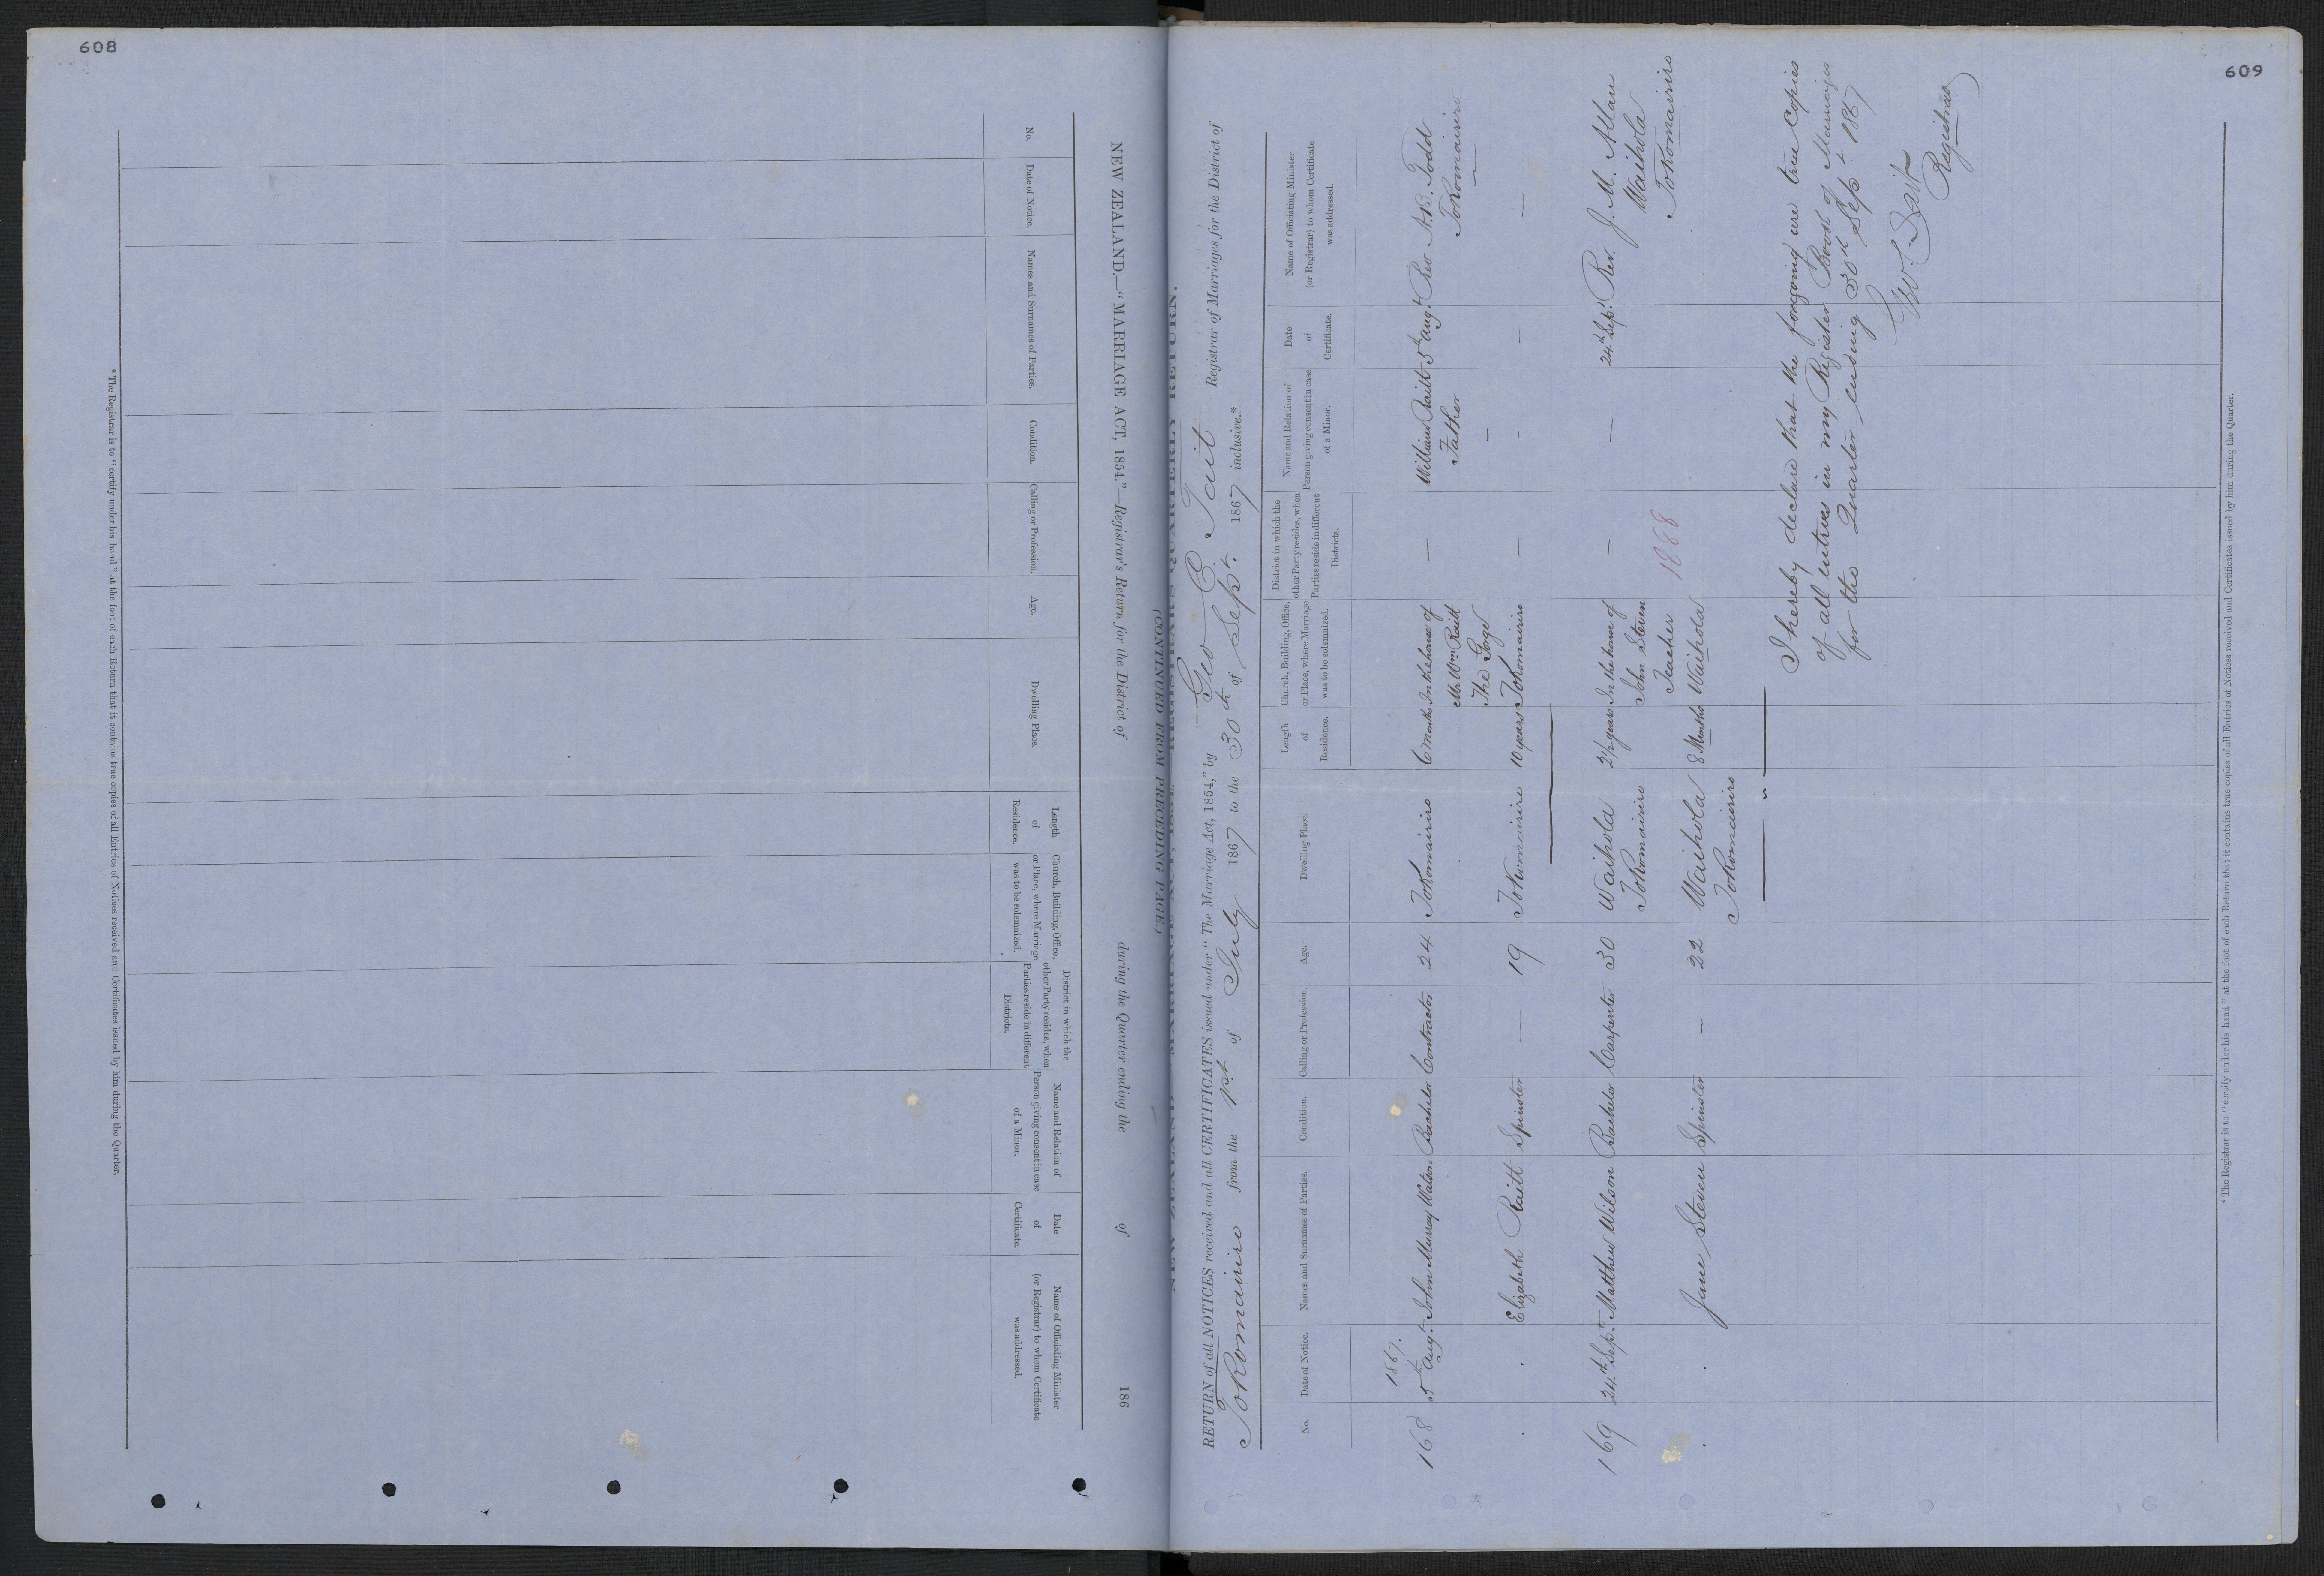 608
NEW ZEALAND.—"MARRIAGE ACT, 1854."—Registrar's Return for the District of during the Quarter ending the of 186
(CONTINUED FROM PRECEDING PAGE.)
No.
Date of Notice.
Names and Surnames of Parties.
Condition.
Calling or Profession.
Age.
Dwelling Place.
Length
of
Residence.
Church, Building, Office,
or Place, where Marriage
was to be solemnized.
District in which the
other Party resides, when
Parties reside in different
Districts.
Name and Relation of
Person giving consent in case
of a Minor.
Date
of
Certificate.
Name of Officiating Minister
(or Registrar) to whom Certificate
was addressed.
* The Registrar is to "certify under his hand" at the foot of each Return that it contains true copies of all Entries of Notices received and Certificates issued by him during the Quarter.
609
NEW ZEALAND—MARRIAGE ACT, 1854. REGISTRAR'S QUARTERLY RETURN.
RETURN of all NOTICES received and all CERTIFICATES issued under "The Marriage Act, 1854," by Geo C. Tait Registrar of Marriages for the District of
Tokomairiro from the 1st of July 1867 to the 30th of Sept. 1867 inclusive.*
No.
Date of Notice.
Names and Surnames of Parties.
Condition.
Calling or Profession.
Age.
Dwelling Place.
Length
of
Residence.
Church, Building, Office,
or Place, where Marriage
was to be solemnized.
District in which the
other Party resides, when
Parties reside in different
Districts.
Name and Relation of
Person giving consent in case
of a Minor.
Date
of
Certificate.
Name of Officiating Minister
(or Registrar) to whom Certificate
was addressed.
1867.
168 5th Augt. John Murray Watson Bachelor Contractor 24 Tokomairiro 6 Months In the house of — William Raitt 5th Augt. Rev A.B. Todd
Mr Wm Raitt Father Tokomairiro
The Gorge —
Elizabeth Raitt Spinster — 19 Tokomairiro 10 years Tokomairiro — - — —
169 24th Sept. Matthew Wilson Bachelor Carpenter 30 Waihola 2½ years In the house of — — 24th Sept. Rev. J. M. Allan
Tokomairiro John Steven Waihola
Teacher 1888 Tokomairiro
Jane Steven Spinster — 22 Waihola 8 Months Waihola
Tokomairiro
I hereby declare that the foregoing are true Copies
of all entries in my Register Book of Marriages
for the Quarter ending 30th Sept. 1867
Geo C. Tait
Registrar
* The Registrar is to "certify under his hand" at the foot of each Return that it contains true copies of all Entries of Notices received and Certificates issued by him during the Quarter.